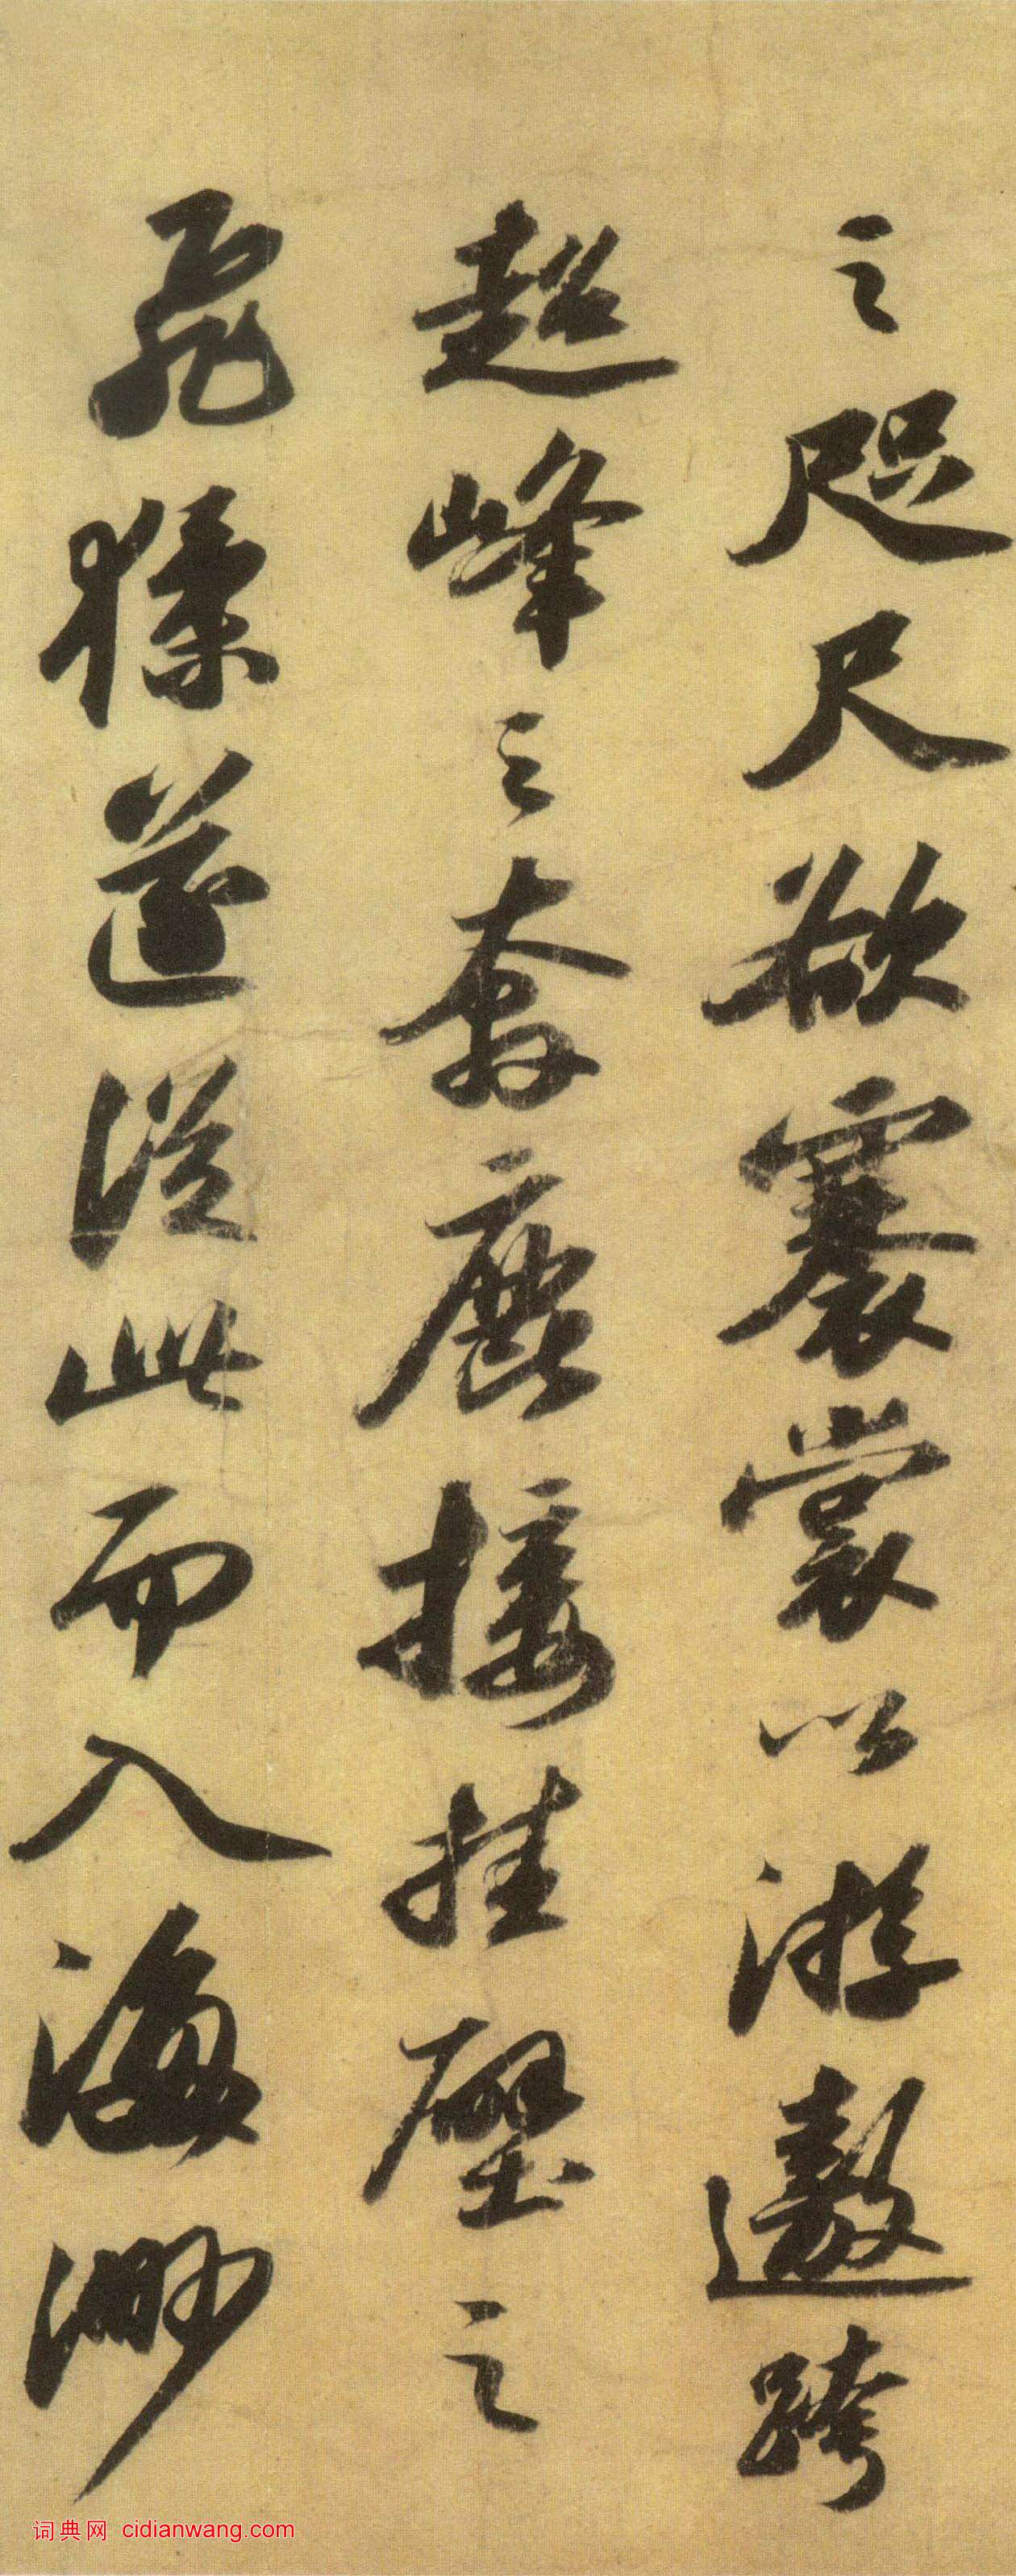 之咫尺欲褰裳以游遨跨
超峰之奔鹿接挂壁之
飛猱遂從此而入海渺
词典网 cidianwang.com